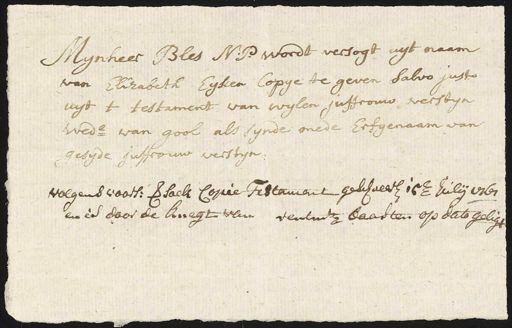 Mynheer Bles N:P: wordt versogt uyt naam
van Elizabeth Eyken Copye te geven Salvo justo
uyt t testament van wylen juffrouw verstyn
wede van gool als synde mede Erfgenaam van
gesyde juffrouw verstyn.
volgens Copie Testament
en is door de knegt van op dato